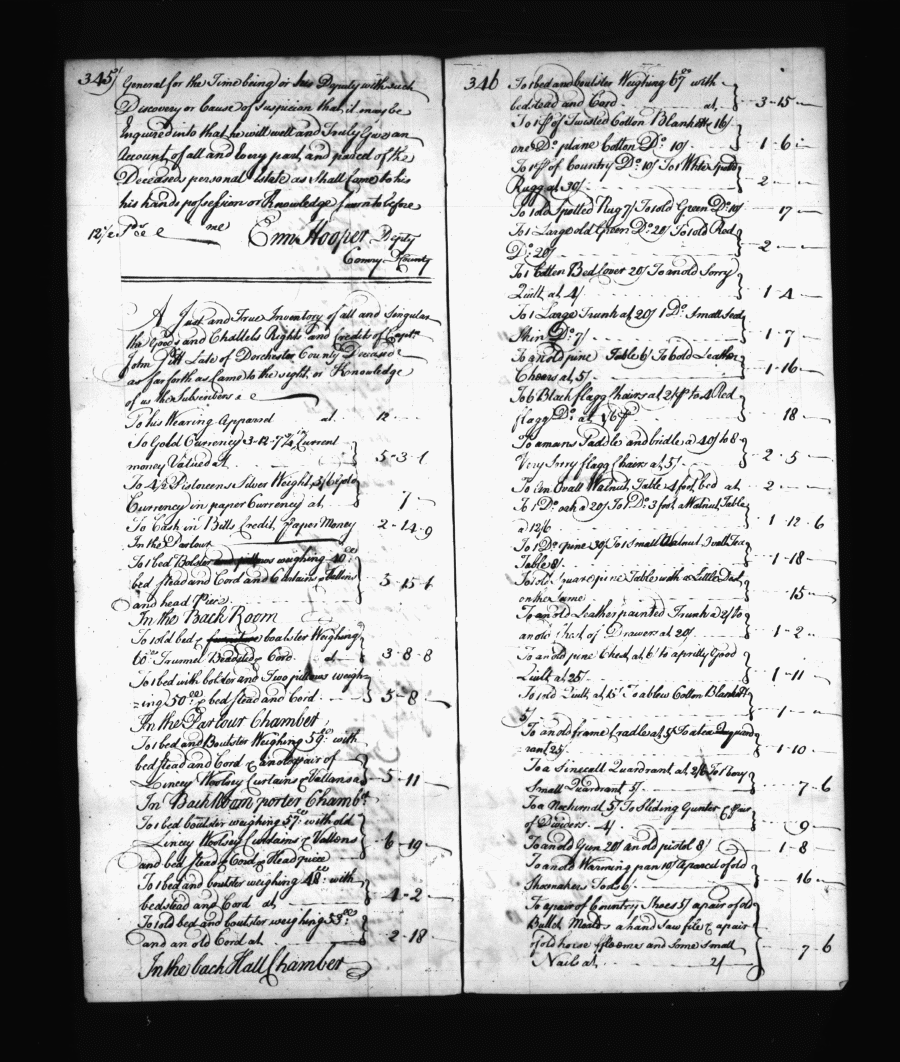 345
General for the Time being or his Deputy with such
Discovery or Cause of Suspicion that it may be
Enquired into that he will well and Truly Give an
Account of all and Every part and parcel of the
Deceased personal Estate as shall Come to his
his hands possession or Knowledge Sworn to before
me
Enn. Hooper Depty
Comry D County
A Just and True Inventory of all and Singular
the Goods and Chattels Rights and Credits of Capt.
John Late of Dorchester County Deceased
as far forth as Came to the sight or Knowledge
of us the Subscribers
To his Wearing Apparel at 12
To Gold Currency 3-12-7½ Current
money Valued at 5-3-1
To 4½ Pistoreens Silver Weight
Currency in paper Currency at 1
To Cash in Bills Credit, Paper Money 2-14-9
In the Parlour
To 1 bed Bolster weighing 40
bed stead and Cord and Curtains Vallins 3-15-1
and head Piece
In the Back Room
To 1 old bed & boulster Weighing
60 Trunnel Bedsted & Cord at 3-8-8
To 1 bed with bolster and Two pillows weigh-
=ing 50 & bed stead and Cord 5-8
In the Parlour Chamber
To 1 bed and Boulster Weighing 59 with
bed stead and Cord & an old pair of
Lincey Woolsey Curtains & Vallans 5-11
In Back Room porter Chambr
To 1 bed boulster weighing 57 with old
Lincey Woolsey Curtains & Vallons 6-19
and bed stead & Cord & Head piece
To 1 bed and boulster weighing 48 with
bedstead and Cord at 4-2
To 1 old bed and boulster weighing 53
and an old Cord at 2-18
In the back Hall Chamber
346
To 1 bed and boulster Weighing 67 with
bedstead and Cord at 3-15
To 1 pr of Twisted Cotton Blankitts 16/
one Do. plane Cotton Do. 10/ 1-6
To 1 pr of Country Do. 10/ To 1 White Spotd
Rugg at 30/ 2
To 1 old Spotted Rug 7/ To 1 old Green Do. 10/ 17
To 1 Large old Green Do. 20/ To 1 old Red
Do. 20/ 2
To 1 Cotten Bed Cover 20/ To an old Sorry
Quilt at 4/ 1-4
To 1 Large Trunk at 20/ 1 Do. Small Seal
Skin Do. 7/ 1-7
To an old pine Table 6/ To 6 old Leather
Cheers at 5/ 1-16
To 6 Black flagg Chairs at 2/ pr To 4 Red
flagg Do. at 1/6 pr 18
To a mans Saddle and bridle a 40/ to 8
Very Sorry flagg Chairs at 5/ 2-5
To an Ovall Walnut Table 4 foot bed at 2
To 1 Do. oak a 20/ To 1 Do. 3 foot a Walnut Table
a 12/6 1-12-6
To 1 Do. pine 30/ To 1 Small Walnut Ovall Tea
Table 8/ 1-18
To 1 old Square pine Table with a Little Desk
on the Same 15
To an old Leather painted Trunk a 2/ to
an old Chest of Drawers at 20/ 1-2
To an old pine Chest at 6/ to a pritty Good
Quilt at 25/ 1-11
To 1 old Quilt at 15/ To a blew Cotton Blankitt
5/ 1
To an old frame Cradle at 5/ To a
rant 25/ 1-10
To a Sinecall Quardrant at 2/6 To 1 bery
Small Quardrant 5/ 7-6
To a Nocturnal 5/ To Sliding Gunter & Pair
of Dividers 4/ 9
To an old Gun 20/ an old pistol 8/ 1-8
To an old Warming pan 10/ A parcel of old
Shoemakers Tools 6/ 16
To a pair of Country Shoes 5/ a pair of old
Bullet Moulds a hand Saw file & a pair
of old horse fleems and Some Small
Nails at 2/ 7-6